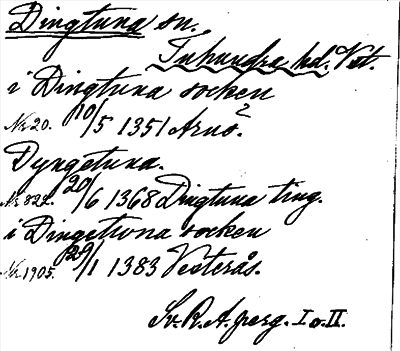 Dingtuna sn.
Tuhundra hd. Vstm.
i Dingtuna socken
Nr 20. 10/5 1351 Arnö.
Dyngetuna.
Nr 822. 20/6 1368 Dingtuna ting.
i Dingetwna socken
Nr 1905. 29/1 1383 Vesterås.
Sv. R. A. perg. I o. II.